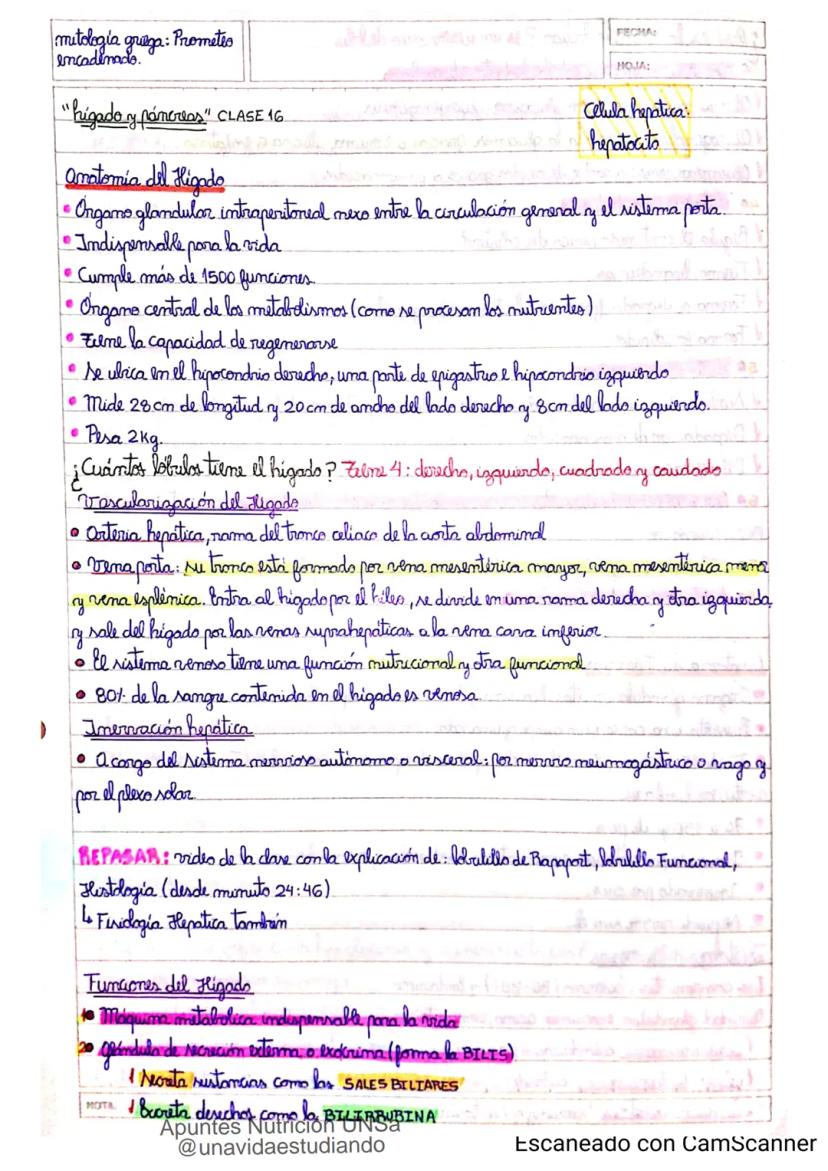 mitología griega: Prometeo
encadenado.
FECHA:
HOJA:
"hígado y páncreas" CLASE 16
Celula hepatica:
hepatocito
Anatomía del Hígado
• Órgano glandular intraperitoneal nexo entre la circulación general y el sistema porta.
• Indispensable para la vida
• Cumple más de 1500 funciones.
• Órgano central de los metabolismos (como se procesan los nutrientes)
• Tiene la capacidad de regenerarse
• Se ubica en el hipocondrio derecho, una parte de epigastrio e hipocondrio izquierdo
• Mide 28cm de longitud y 20cm de ancho del lado derecho y 8cm del lado izquierdo.
• Pesa 2Kg.
¿Cuántos lóbulos tiene el hígado? Tiene 4: derecho, izquierdo, cuadrado y caudado
Vascularización del Hígado
• Arteria hepática, rama del tronco celiaco de la aorta abdominal
• Vena porta: su tronco está formado por vena mesentérica mayor, vena mesentérica menor
y vena esplénica. Entra al hígado por el hileo, se divide en una rama derecha y otra izquierda,
y sale del hígado por las venas suprahepáticas a la vena cava inferior.
• El sistema venoso tiene una función nutricional y otra funcional
• 80% de la sangre contenida en el hígado es venosa.
Inervación hepática
• A cargo del sistema nervioso autónomo o visceral: por nervio neumogástrico o vago y
por el plexo solar.
REPASAR: video de la clase con la explicación de: lobulillo de Rapaport, lobulillo Funcional,
Histología (desde minuto 24:46)
↳ Fisiología Hepatica también
Funciones del Hígado
1• Máquina metabolica indispensable para la vida
2• glándula de secreción externa o exócrina (forma la BILIS)
Secreta sustancias como las SALES BILIARES
NOTA
Secreta desechos como la BILIRRUBINA
Apuntes Nutrición UNSa
@unavidaestudiando
Escaneado con CamScanner